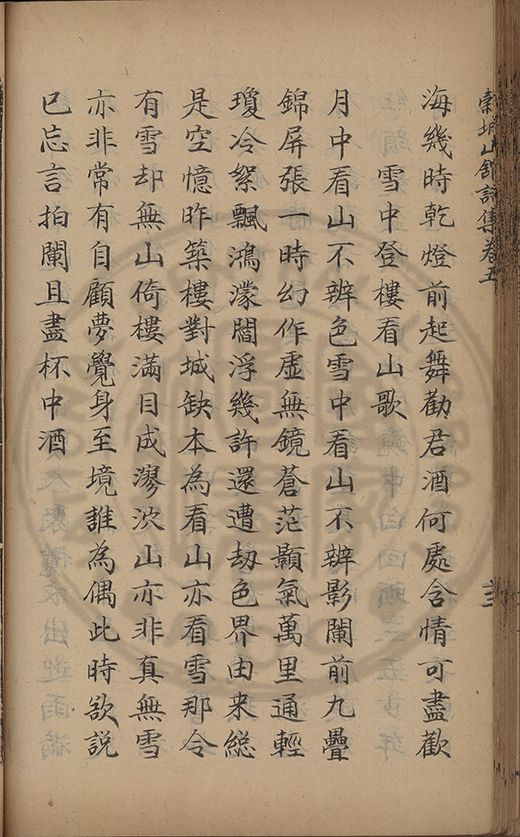 穀城山館詩集卷五
海幾時乾燈前起舞勸君酒何處含情可盡歡
雪中登樓看山歌
月中看山不辨色雪中看山不辨影闌前九疊
錦屏張一時幻作虛無鏡蒼茫顥氣萬里通輕
瓊冷絮飄鴻濛閻浮幾許還遭劫色界由来総
是空憶昨築樓對城缺本為看山亦看雪那令
有雪却無山倚樓滿目成漻泬山亦非真無雪
亦非常有自顧夢覺身至境誰為偶此時欲説
已忘言拍闌且盡杯中酒